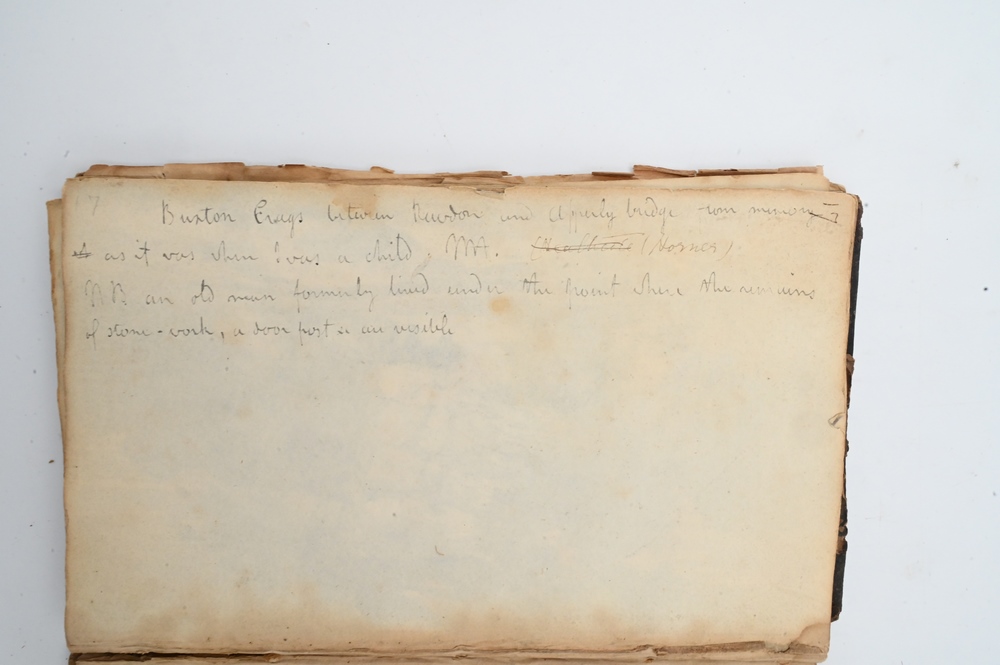 7 Buxton Crags between Rawdon and Apperly bridge from memory
as it was when I was a child, MA. (Horner)
NB an old man formerly lived under the point where the remains
of stone-work, a door post &c are visible